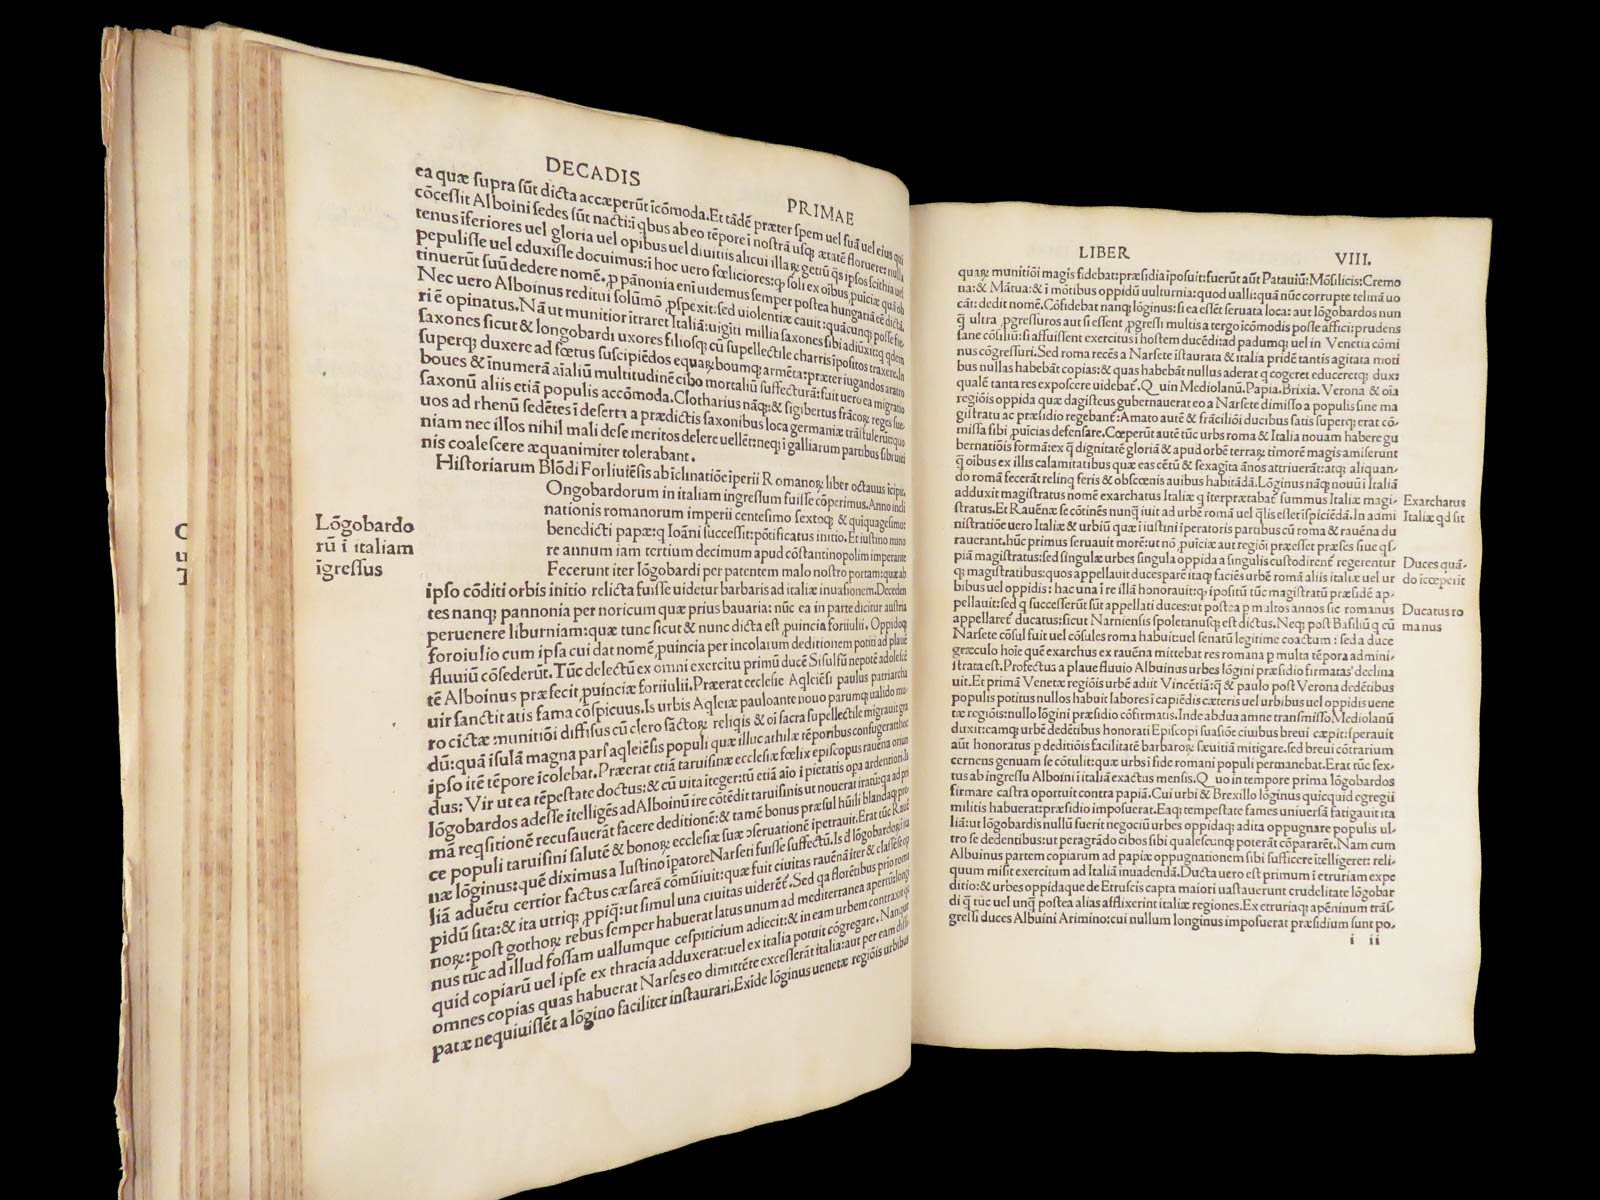 DECADIS
PRIMAE
ea quæ supra sũt dicta accæperũt ĩcõmoda. Et tãdẽ præter spem uel suã uel eius qui
cõcessit Alboini sedes sũt nacti: ĩ qbus ab eo tẽpore ĩ nostrã usq; ætatẽ
tenus ĩferiores uel gloria uel opibus uel diuitiis alicui
pepulisse uel eduxisse docuimus: ĩ hoc uero fœliciores: q; soli ex oĩbus
tinuerũt suũ dedere nomẽ. pannonia enĩ uidemus semper postea hungariã
Nec uero Alboinus reditui solũmõ ꝓspexit: sed uiolentiæ cauit:
ri ẽ opinatus. Nã ut munitior ĩtraret Italiã: uigĩti millia saxones sibi
saxones sicut & longobardi uxores filiosq; cũ supellectile charris ĩpositos traxere. In
superq; duxere ad fœtus suscipiẽdos equaꝝ boumq; armẽta: præter iugandos aratro
boues & ĩnumerã aĩaliũ multitudinẽ cibo mortaliũ suffecturã: fuit uero ea migratio
saxonũ aliis etiã populis accõmoda. Clotharius nãq; & sigibertus frãcoꝝ reges sue
uos ad rhenũ sedẽtes ĩ deserta a prædictis saxonibus loca germaniæ trãstulerũt: quo
niam nec illos nihil mali de se meritos delere uellẽt: neq; ĩ galliarum partibus sibi uici
nis coalescere æquanimiter tolerabant.
Historiarum Blõdi Forliuiẽsis ab ĩclinatiõe ĩperii Romanoꝝ liber octauus ĩcipit.
Ongobardorum in italiam ingressum fuisse cõperimus. Anno incli
nationis romanorum imperii centesimo sextoq; & quiquagesimo:
benedicti papæ: q Ioãni successit: põtificatus initio. Et iustino mino
re annum iam tertium decimum apud cõstantinopolim imperante
Fecerunt iter lõgobardi per patentem malo nostro portam: quæ ab
Lõgobardo
rũ ĩ italiam
ĩgressus
ipso cõditi orbis initio relicta fuisse uidetur barbaris ad italiæ inuasionem. Deceden
tes nanq; pannonia per noricum quæ prius bauaria: nũc ea in parte dicitur austria
peruenere liburniam: quæ tunc sicut & nunc dicta est ꝓuincia foriiulii. Oppidoq;
foroiulio cum ipsa cui dat nomẽ ꝓuincia per incolarum deditionem potiti ad plauẽ
fluuiũ cõsederũt. Tũc delectũ ex omni exercitu primũ ducẽ Sisulsũ nepotẽ adolescẽ
tẽ Alboinus præfecit ꝓuinciæ foriiulii. Præerat ecclesie Aqleiẽsi paulus patriarcha
uir sanctitatis fama cõspicuus. Is urbis Aqleiæ paulo ante nouo parumq; ualido mu
ro cictæ munitiõi diffisus cũ clero sãctoꝝ reliqis & oĩ sacra supellectile migrauit gra
dũ: quã ĩsulã magna pars aqleiẽsis populi quæ illuc athilæ tẽporibus confugerat: hoc
ipso itẽ tẽpore ĩcolebat. Præerat etiã taruisinæ ecclesiæ fœlix episcopus rauẽna oriun
dus: Vir ut ea tẽpestate doctus: & cũ uita ĩteger: tũ etiã aĩo ĩ pietatis opa ardentiori. Is
lõgobardos adesse ĩtelligẽs ad Alboinũ ire cõtẽdit taruisinis ut nouerat
mã reqsitionẽ recusauerãt facere deditionẽ: & tamẽ bonus præsul hũili
ce populi taruisini salutẽ & bonoꝝ ecclesiæ suæ ɔseruationẽ ĩpetrauit. Erat tũc
næ lõginus: quẽ diximus a Iustino ĩpatore Narseti fuisse suffectũ. Is d lõgobardoꝝ
liã aduẽtu certior factus cæsareã cõmũiuit: quæ fuit ciuitas rauẽnã ĩter & classẽse op
pidũ sita: & ita utriq; ꝓpĩq: ut simul una ciuitas uiderẽt. Sed qa florẽtibus prio roma
noꝝ: post gothoꝝ rebus semper habuerat latus unum ad mediterranea apertũ:
nus tũc ad illud fossam uallumque cespiticium adiecit: & in eam urbem contraxit
quid copiarũ uel ipse ex thracia adduxerat: uel ex italia potuit cõgregare. Nanque
omnes copias quas habuerat Narses eo dimittẽte excesserãt italia: aut per eam
patæ nequiuissẽt a lõgino faciliter instaurari. Exide lõginus uenetæ regiõis urbibus
LIBER
VIII.
quaꝝ munitiõi magis fidebat: præsidia ĩposuit: fuerũt aũt Patauiũ: Mõsilicis: Cremo
na: & Mãtua: & ĩ mõtibus oppidũ uulturnia: quod ualli: quã nũc corrupte telinã uo
cãt: dedit nomẽ. Cõfidebat nanq; lõginus: si ea essẽt seruata loca: aut lõgobardos nun
q̃ ultra ꝓgressuros aut si essent ꝓgressi multis a tergo ĩcõmodis posse affici: prudens
sane cõsiliũ: si affuissent exercitus ĩ hostem ducẽdi: ad padumq; uel in Venetia cõmi
nus cõgressuri. Sed roma recẽs a Narsete ĩstaurata & italia pridẽ tantis agitata moti
bus nullas habebãt copias: & quas habebãt nullus aderat q cogeret educeretq; dux:
qualẽ tanta res exposcere uidebat̃. Q uin Mediolanũ. Papia. Brixia. Verona & oĩa
regiõis oppida quæ dagisteus gubernauerat eo a Narsete dimisso a populis sine ma
gistratu ac præsidio regebant̃: Amato autẽ & frãciliõi ducibus satis superq; erat cõ-
missa sibi ꝓuicias defensare. Cœperũt autẽ tũc urbs roma & Italia nouam habere gu
bernatiõis formã: ex q̃ dignitatẽ gloriã & apud orbẽ terraꝝ timorẽ magis amiserunt
q̃ oĩbus ex illis calamitatibus quæ eas cẽtũ & sexagĩta ãnos attriuerãt: atq; aliquan-
do romã fecerãt relinq feris & obscœnis auibus habitãdã. Lõginus nãq; nouũ ĩ Italiã
adduxit magistratus nomẽ exarchatus Italiæ q ĩterprætabat̃ summus Italiæ magi-
stratus. Et Rauẽnæ se cõtinẽs nunq̃ iuit ad urbẽ romã uel q̃lis esset ĩspiciẽdã. In admi
nistratiõe uero Italiæ & urbiũ quæ ĩ iustini ĩperatoris partibus cũ roma & rauẽna du
rauerant. hũc primus seruauit morẽ: ut nõ ꝓuiciæ aut regiõi præesset præses siue qs-
piã magistratus: sed singulæ urbes singula oppida a singulis custodirent̃ regerentur
q; magistratibus: quos appellauit duces parẽ ĩtaq; faciẽs urbẽ romã aliis italiæ uel ur
bibus uel oppidis: hac una ĩ re illã honorauit: q; ĩpositũ tũc magistratũ præsidẽ ap-
pellauit: sed q successerũt sũt appellati duces: ut postea p multos annos sic romanus
appellaret̃ ducatus: sicut Narniensis spoletanusq; est dictus. Neq; post Basiliũ q cũ
Narsete cõsul fuit uel cõsules roma habuit: uel senatũ legitime coactum: sed a duce
græculo hoĩe quẽ exarchus ex rauẽna mittebat res romana p multa tẽpora admini-
strata est. Profectus a plaue fluuio Albuinus urbes lõgini præsidio firmatas declina
uit. Et primã Venetæ regiõis urbẽ adiit Vincẽtiã: q̃ & paulo post Verona dedẽtibus
populis potitus nullos habuit labores ĩ capiẽdis cæteris uel urbibus uel oppidis uene
tæ regiõis: nullo lõgini præsidio cõfirmatis. Inde abdua amne transmisso Mediolanũ
duxit: camq; urbẽ dedẽtibus honorati Episcopi suasiõe ciuibus breui cæpit: sperauit
aũt honoratus p deditiõis facilitatẽ barbaroꝝ sæuitiã mitigare. sed breui cõtrarium
cernens genuam se cõtulit: quæ urbs ĩ fide romani populi permanebat. Erat tũc sex-
tus ab ingressu Alboini ĩ italiã exactus mensis. Q uo in tempore prima lõgobardos
firmare castra oportuit contra papiã. Cui urbi & Brexillo lõginus quicquid egregii
militis habuerat: præsidio imposuerat. Eaq; tempestate fames uniuersã fatigauit ita
liã: ut lõgobardis nullũ fuerit negociũ urbes oppidaq; adita oppugnare populis ul-
tro se dedentibus: ut peragrãdo cibos sibi qualescunq; poterãt cõpararẽt. Nam cum
Albuinus partem copiarum ad papiæ oppugnationem sibi sufficere ĩtelligeret: reli-
quum misit exercitum ad Italiã inuadendã. Ducta uero est primum ĩ etruriam expe
ditio: & urbes oppidaque de Etruscis capta maiori uastauerunt crudelitate lõgobar
di q̃ tũc uel unq̃ postea alias afflixerint italiæ regiones. Ex etruriaq; apẽninum trãs-
gressi duces Albuini Arimino: cui nullum longinus imposuerat præsidium sunt po-
i ii
Exarchatus
Italiæ qd sit
Duces quã-
do ĩcœperĩt
Ducatus ro
manus